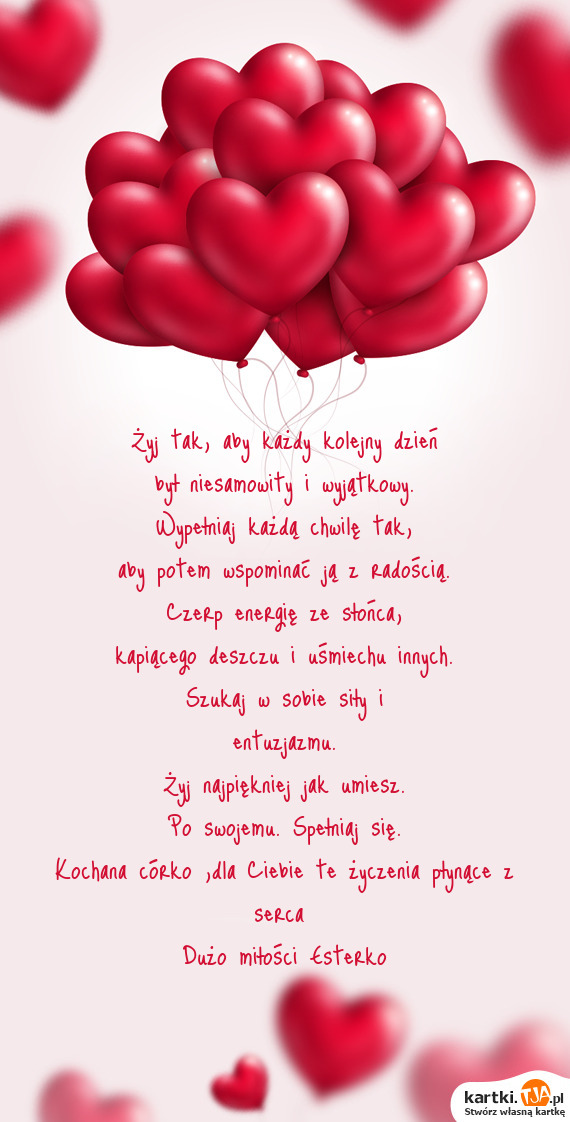 Żyj tak, aby każdy kolejny dzień
był niesamowity i wyjątkowy.
Wypełniaj każdą chwilę tak,
aby potem wspominać ją z radością.
Czerp energię ze słońca,
kapiącego deszczu i uśmiechu innych.
Szukaj w sobie siły i
entuzjazmu.
Żyj najpiękniej jak umiesz.
Po swojemu. Spełniaj się.
Kochana córko ,dla Ciebie te życzenia płynące z
serca
Dużo miłości Esterko
kartki.TJA.pl
Stwórz własną kartkę